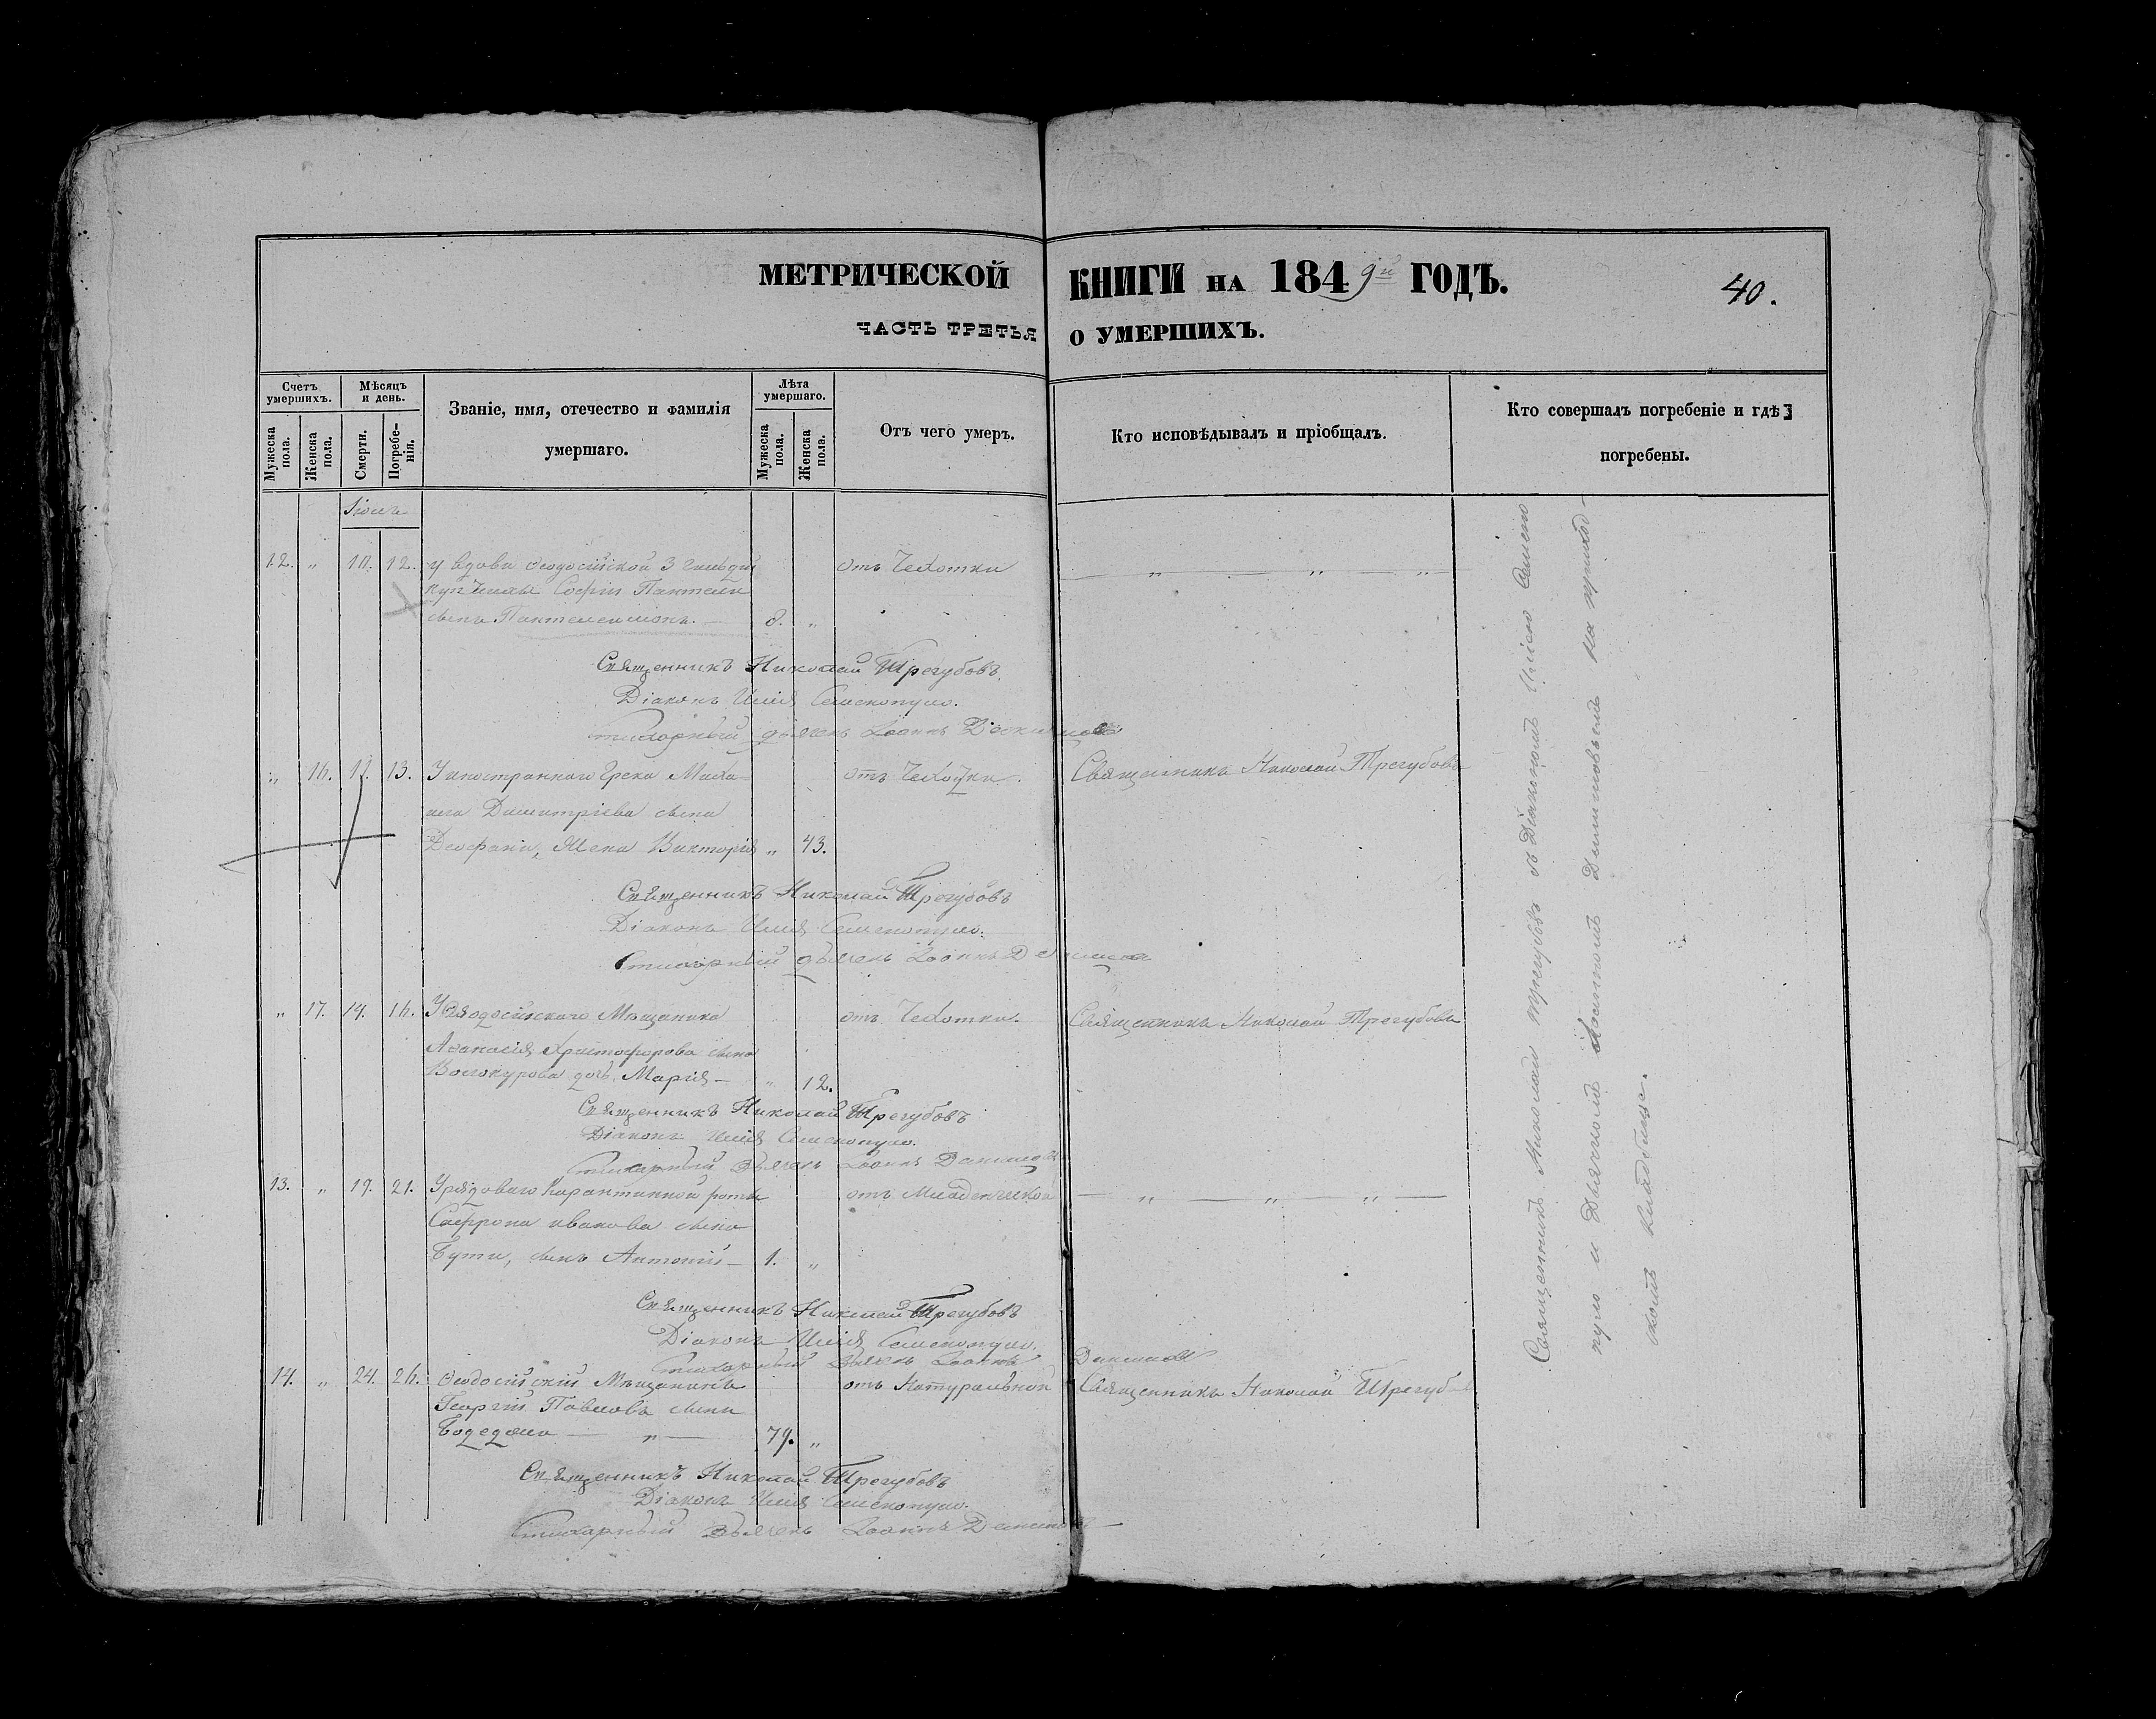 МЕТРИЧЕСКОЙ КНИГИ НА 1849й ГОДЪ.
40.
ЧАСТЬ ТРЕТЬЯ О УМЕРШИХЪ.
Счетъ умершихъ.
Мѣсяцъ и день.
Званіе, имя, отечество и фамилія умершаго.
Лѣта умершаго.
Отъ чего умеръ.
Кто исповѣдывалъ и пріобщалъ.
Кто совершалъ погребеніе и гдѣ погребены.
Мужеска пола.
Женска пола.
Смерти.
Погребенія.
Мужеска пола.
Женска пола.
12. " 10. 12. у вдовы Ѳеодосійской 3 гильдіи отъ Чехотки " " "
купчихи Софіи
сынъ Пантелеимонъ. — 8. "
Священникъ Николай Трегубовъ.
Діаконъ Илія
Стихарный дьячекъ Іоаннъ
" 16. 11. 13. У иностраннаго Грека Миха- отъ Чехотки. Священникъ Николай Трегубовъ
ила Димитріева сына
жена Викторія " 43.
Священникъ Николай Трегубовъ
Діаконъ Илія
Стихарный дьячекъ Іоаннъ
" 17. 14. 16. У Ѳеодосійскаго Мѣщанина отъ Чехотки. Священникъ Николай Трегубовъ
Аѳанасія Христофорова сына
дочь Марія — " 12.
Священникъ Николай Трегубовъ
Діаконъ Илія
Стихарный дьячекъ Іоаннъ
13. " 19. 21. У рядоваго Карантинной роты отъ Младенческой — " — " — " —
Сафрона иванова сына
Бути, сынъ Антоній — 1. "
Священникъ Николай Трегубовъ
Діаконъ Илія
Стихарный дьячекъ Іоаннъ
14. " 24. 26. Ѳеодосійскій Мѣщанинъ отъ Натуральной Священникъ Николай Трегубовъ
Георгій Павловъ сынъ
— " — 79. "
Священникъ Николай Трегубовъ
Діаконъ Илія
Стихарный дьячекъ Іоаннъ
Священникъ Николай Трегубовъ съ Діакономъ Иліею
и Дьячкомъ на приход-
скомъ кладбище.